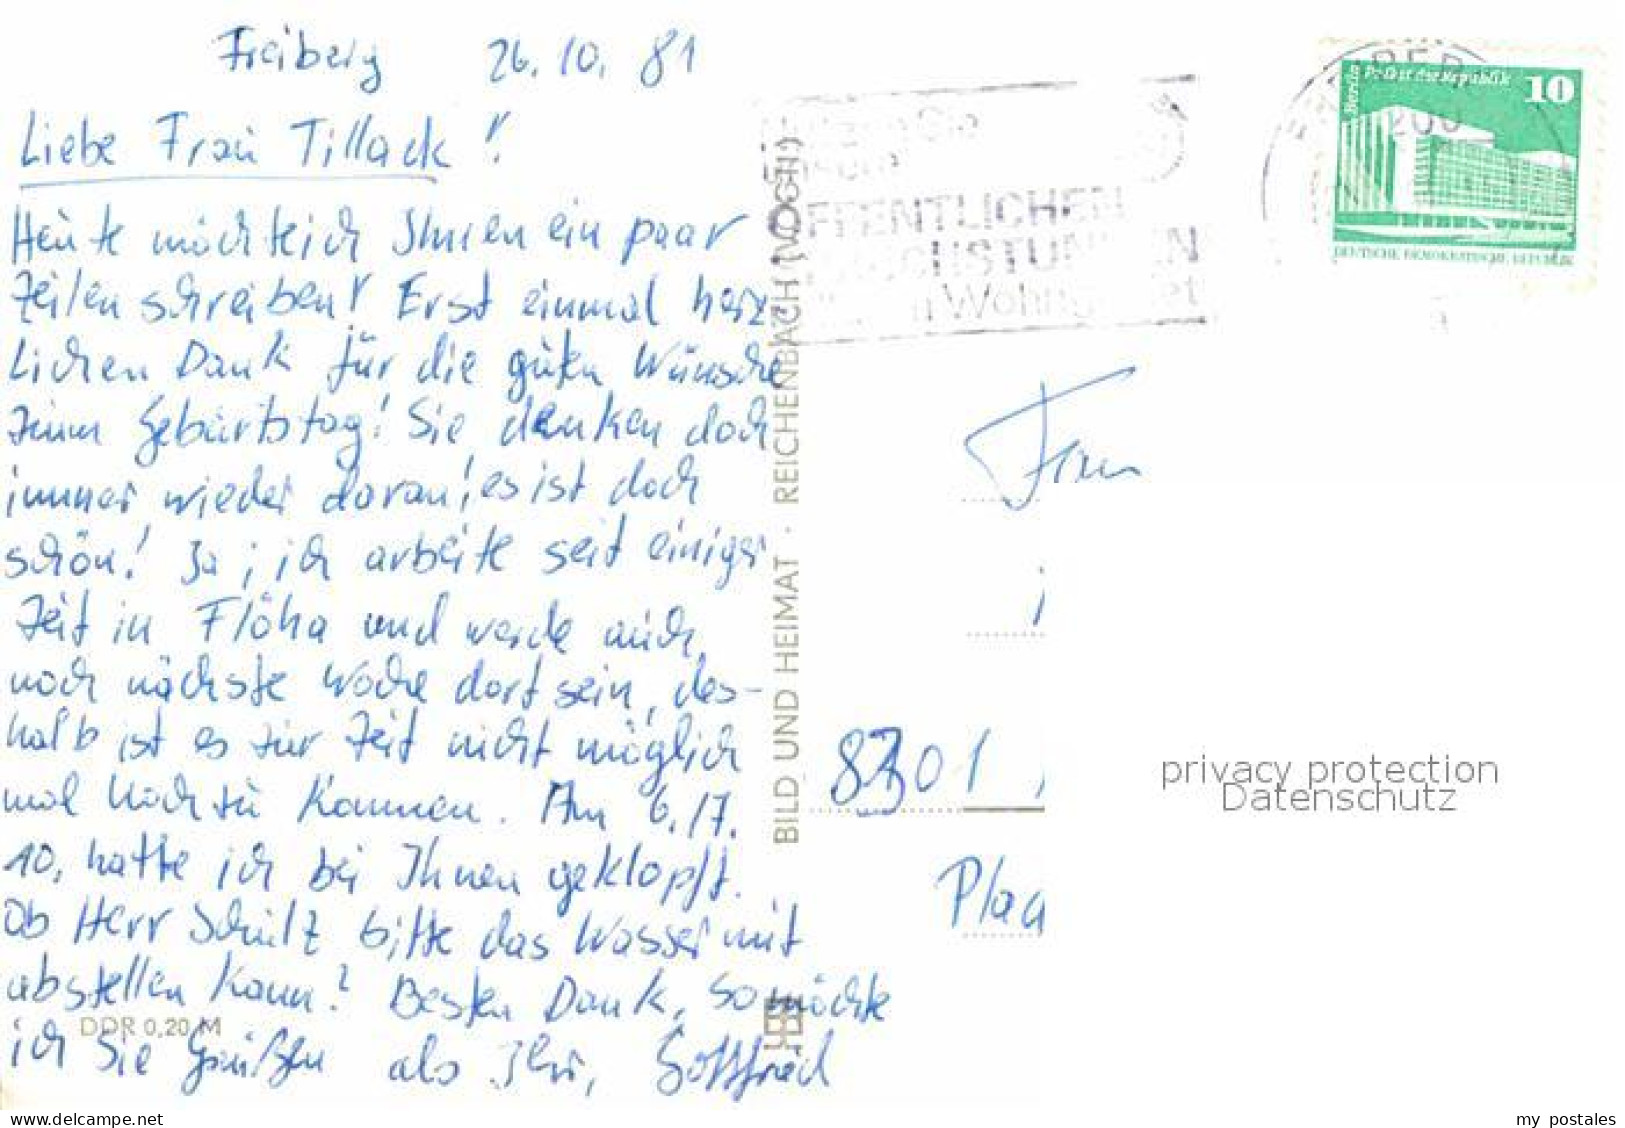 Freiberg 26.10.81
Liebe Frau Tillack!
Heute möchte ich Ihnen ein paar
Zeilen schreiben! Erst einmal herz
lichen Dank für die guten Wünsche
zum Geburtstag! Sie denken doch
immer wieder daran, es ist doch
schön! Ja, ich arbeite seit einiger
Zeit in Flöha und werde auch
noch nächste Woche dort sein, des-
halb ist es zur Zeit nicht möglich
mal hoch zu kommen. Am 6./7.
10. hatte ich bei Ihnen geklopft.
Ob Herr Schulz bitte das Wasser mit
abstellen kann? Besten Dank, so möchte
ich Sie Grüßen als Ihr, Gottfried
DDR 0,20 M
BILD UND HEIMAT · REICHENBACH (VOGTL)
Berlin Palast der Republik 10
DEUTSCHE DEMOKRATISCHE REPUBLIK
Frau
8301
Plau
privacy protection
Datenschutz
www.delcampe.net
my_postales